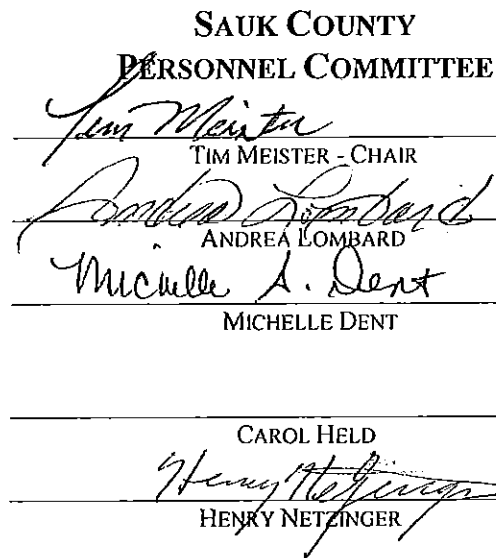 SAUK COUNTY
PERSONNEL COMMITTEE
Tim Meister
TIM MEISTER - CHAIR
Andrea Lombard
ANDREA LOMBARD
Michelle A. Dent
MICHELLE DENT
CAROL HELD
Henry Netzinger
HENRY NETZINGER